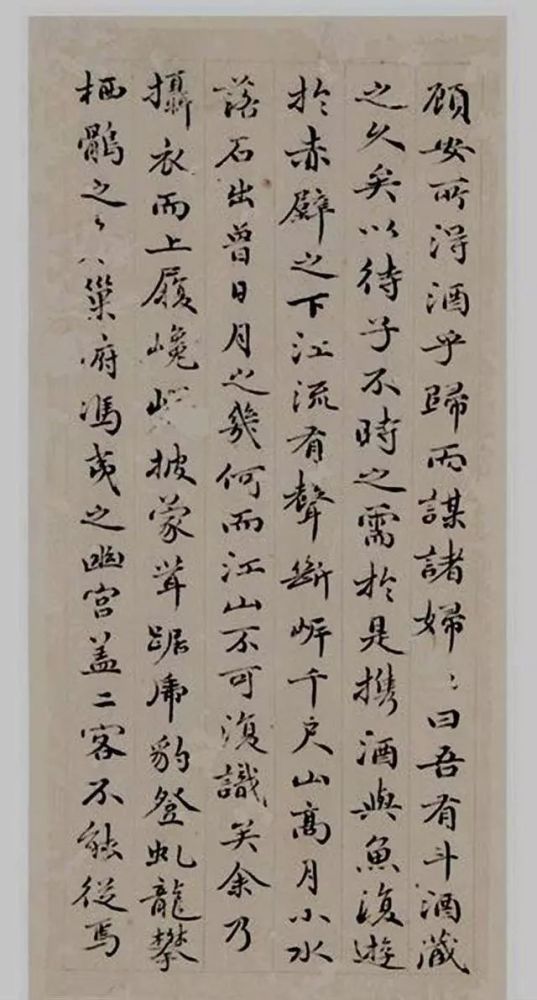 顾安所得酒乎歸而謀諸婦〻曰吾有斗酒藏
之久矣以待子不時之需於是携酒與魚復遊
於赤壁之下江流有聲斷岸千尺山高月小水
落石出曾日月之幾何而江山不可復識矣余乃
攝衣而上履巉披蒙茸踞虎豹登虬龍攀
栖鶻之巢府馮夷之幽宮盖二客不能從焉